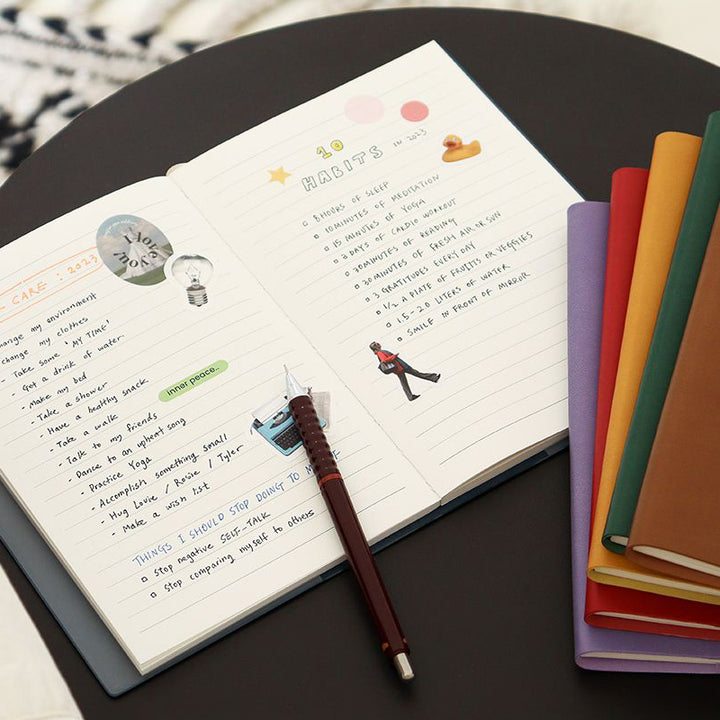 CARE : 2023
I love you!
change my environment
change my clothes
- Take some 'MY TIME'
- Get a drink of water
- Make my bed
- Take a shower
- Have a healthy snack
- Take a walk
- Talk to my friends
- Dance to an upbeat song
- Practice Yoga
- Accomplish something small
- Hug Lovie / Rosie / Tyler
- Make a wish list
Inner peace..
THINGS I SHOULD STOP DOING TO
□ Stop negative SELF-TALK
□ Stop comparing myself to others
10
HABITS IN 2023
□ 8 HOURS OF SLEEP
□ 10 MINUTES OF MEDITATION
□ 15 MINUTES OF YOGA
□ 3 DAYS OF CARDIO WORKOUT
□ 30 MINUTES OF READING
□ 30 MINUTES OF FRESH AIR OR SUN
□ 3 GRATITUDES EVERY DAY
□ 1/2 A PLATE OF FRUITS OR VEGGIES
□ 1.5-2.0 LITERS OF WATER
□ SMILE IN FRONT OF MIRROR